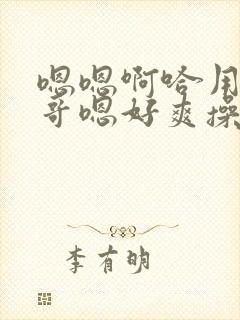 嗯嗯啊哈用
哥嗯好爽操
李有明